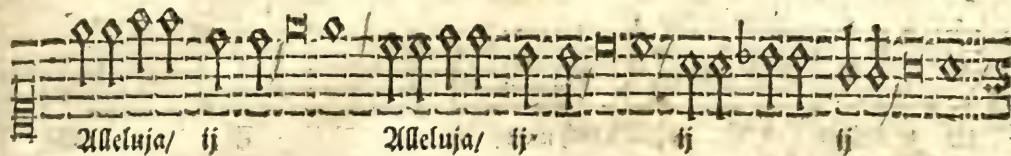 Alleluja/ ij Alleluja/ ij ij ij